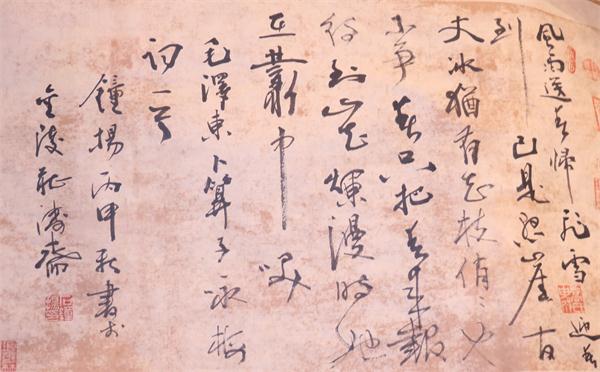 風雨送春歸飛雪迎春
到已是懸崖百
丈冰猶有花枝俏〻也
不爭春只把春來報
待到山花爛漫時她
在叢中笑
毛澤東卜算子咏梅
詞一首
鐘揚丙申秋書於
金陵齋